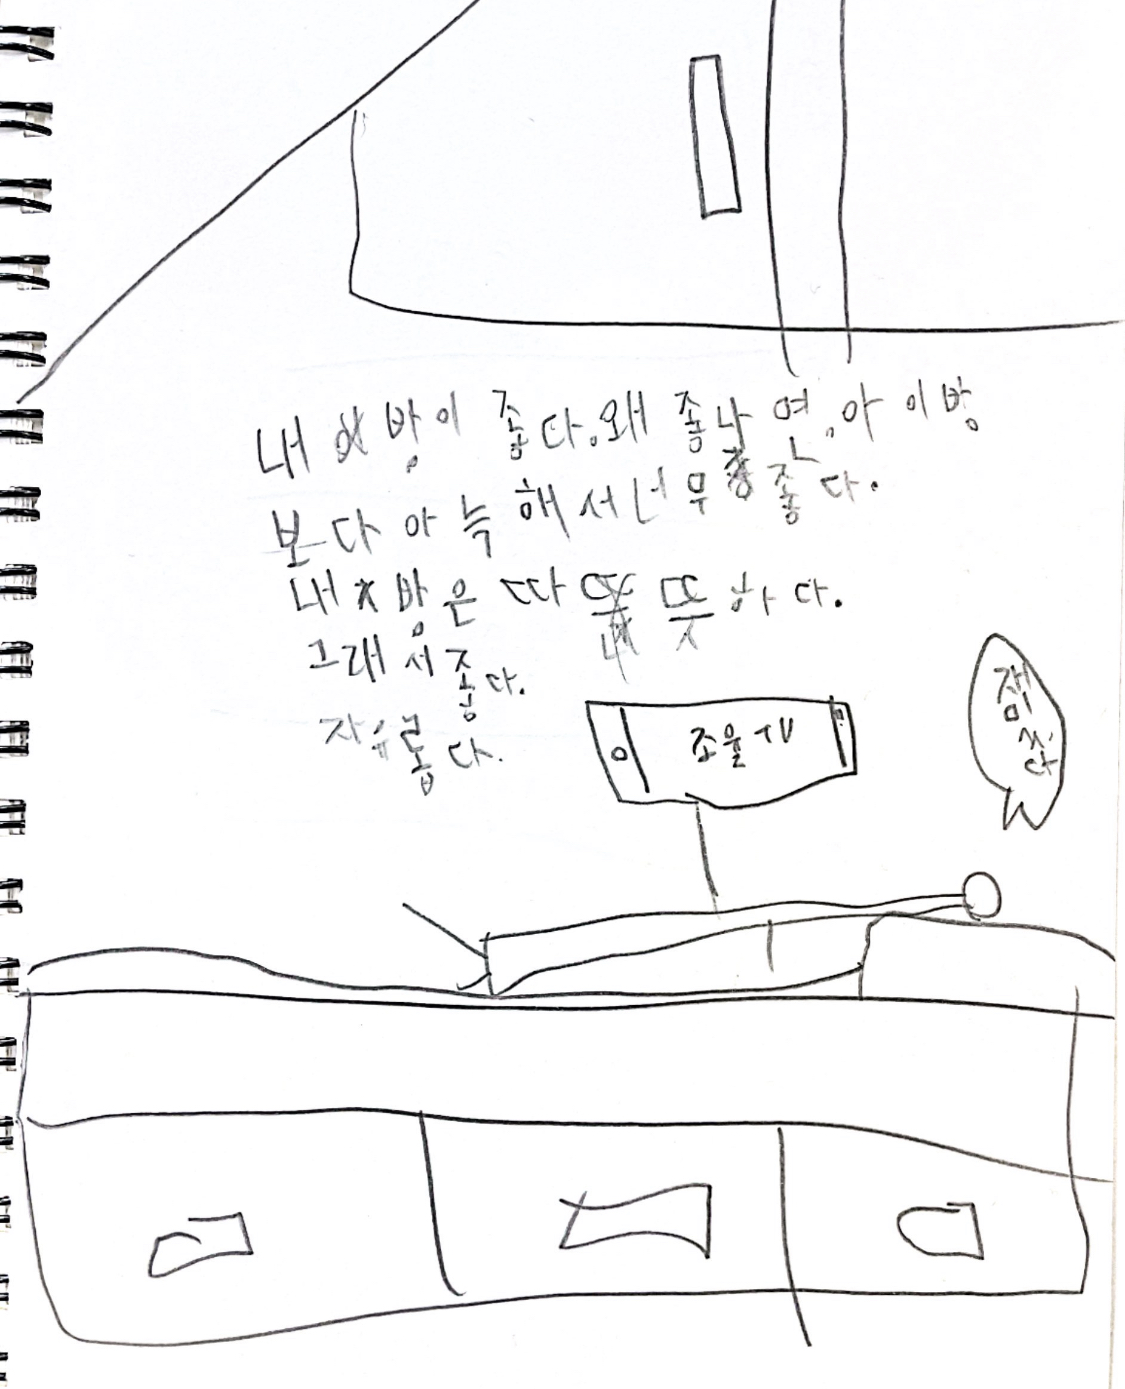 내 방이 좋다. 왜 좋냐 면, 아 이 방
보다 아늑해서 너무 좋다.
내 방은 따뜻하다.
그래서 좋다.
자유롭다.
조율TV
재밌다